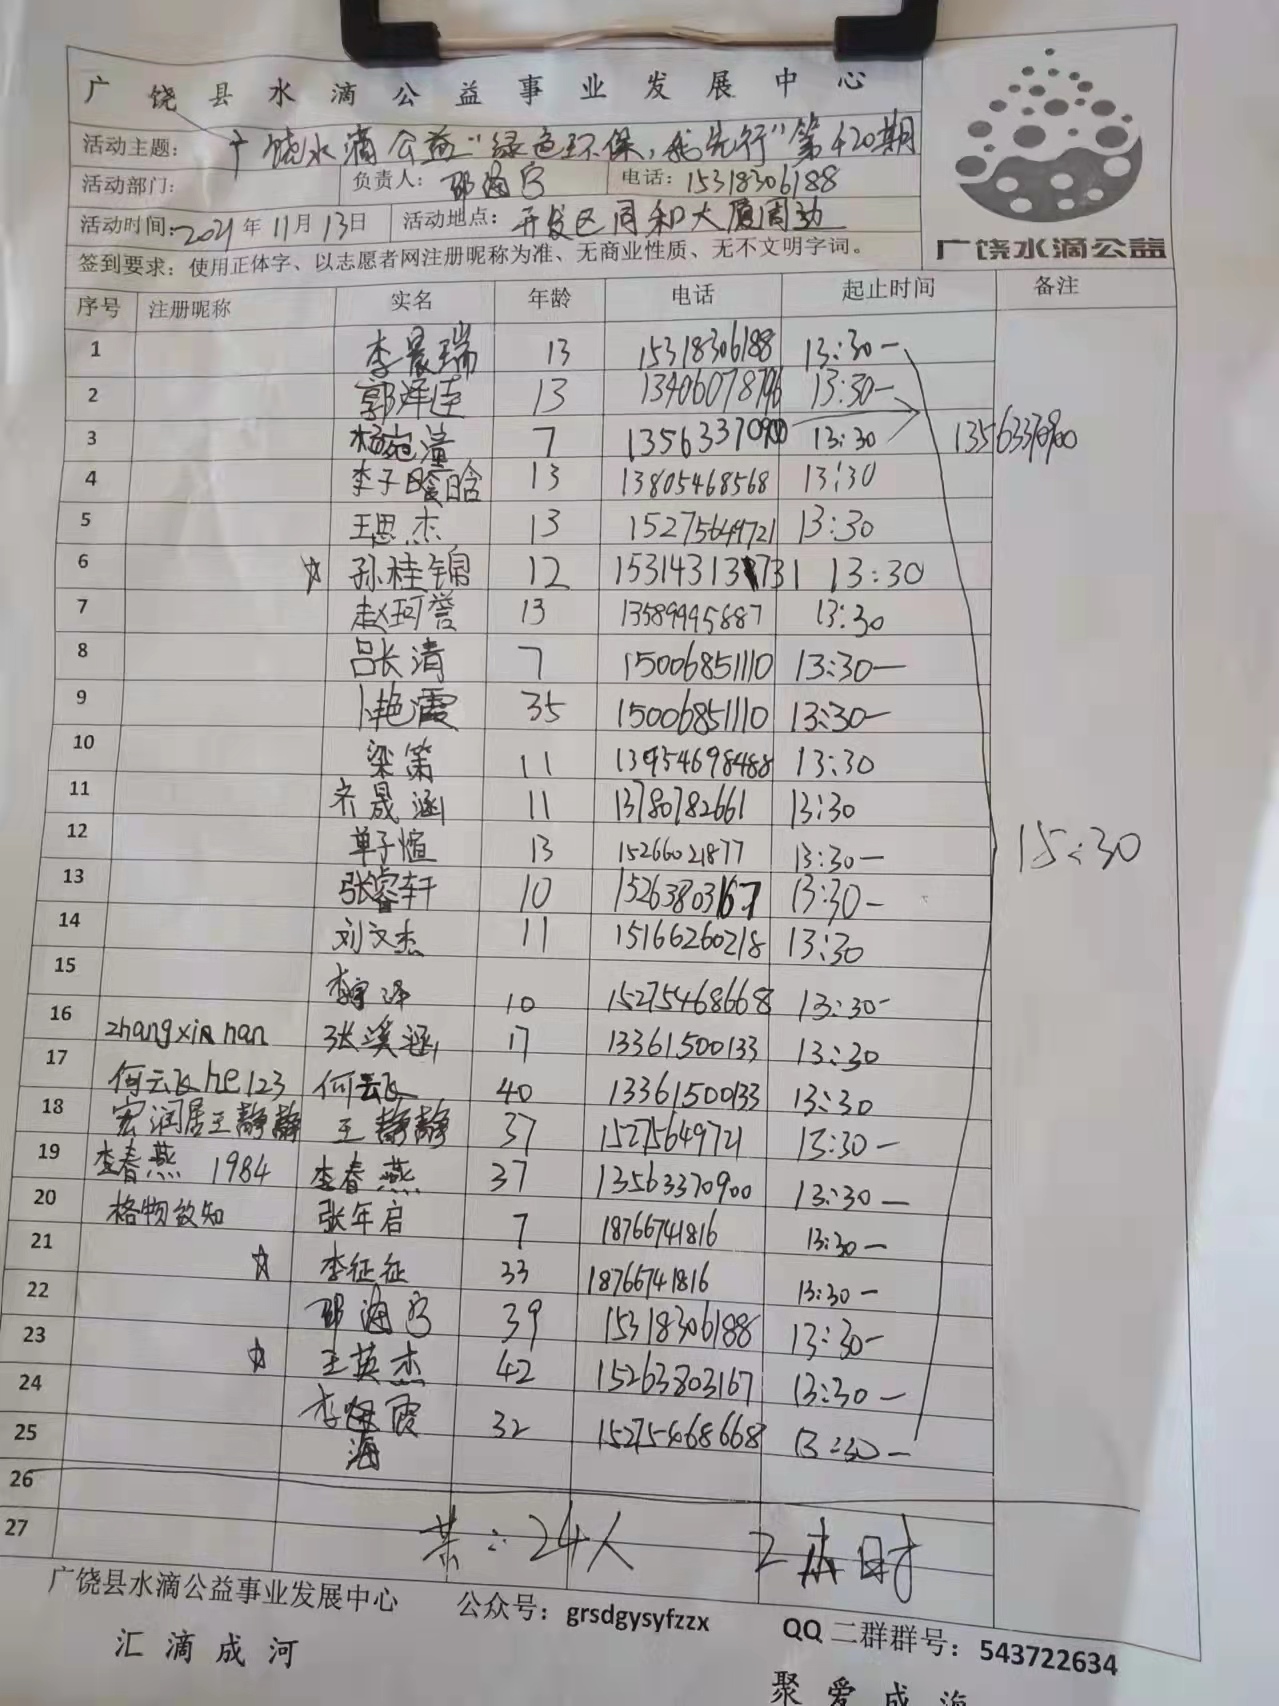 广饶县水滴公益事业发展中心
活动主题: 广饶水滴公益"绿色环保,我先行"第420期
活动部门: 负责人: 邵海宁 电话: 15318306188
活动时间: 2021年11月13日 活动地点: 开发区同和大厦周边
签到要求: 使用正体字、以志愿者网注册昵称为准、无商业性质、无不文明字词。
广饶水滴公益
序号 注册昵称 实名 年龄 电话 起止时间 备注
1 李晨瑞 13 15318306188 13:30—
2 郭洋连 13 13406078796 13:30—
3 杨宛潼 7 13563370900 13:30 13563370900
4 李子晗 13 13805468568 13:30
5 王思杰 13 15275649721 13:30
6 ☆ 孙桂锦 12 15314313731 13:30
7 赵珂誉 13 13589995687 13:30
8 吕长清 7 15006851110 13:30—
9 卜艳霞 35 15006851110 13:30—
10 梁 11 13954698488 13:30
11 齐晟涵 11 13780782661 13:30
12 单子煊 13 15266021877 13:30—
15:30
13 张睿轩 10 15263803167 13:30—
14 刘文杰 11 15166260218 13:30
15 李宇泽 10 15275468668 13:30—
16 zhangxinnan 张溪涵 17 13361500133 13:30
17 何云飞he123 何云飞 40 13361500133 13:30
18 宏润居王静静 王静静 37 15275649721 13:30—
19 李春燕1984 李春燕 37 13563370900 13:30—
20 格物致知 张年启 7 18766741816 13:30—
21 ☆ 李征征 33 18766741816 13:30—
22 邵海宁 39 15318306188 13:30—
23 ☆ 王英杰 42 15263803167 13:30—
24 李海霞 32 15275468668 13:30—
25
26
27 共:24人 2小时
广饶县水滴公益事业发展中心 公众号: grsdgysyfzzx QQ二群群号: 543722634
汇滴成河
聚爱成海